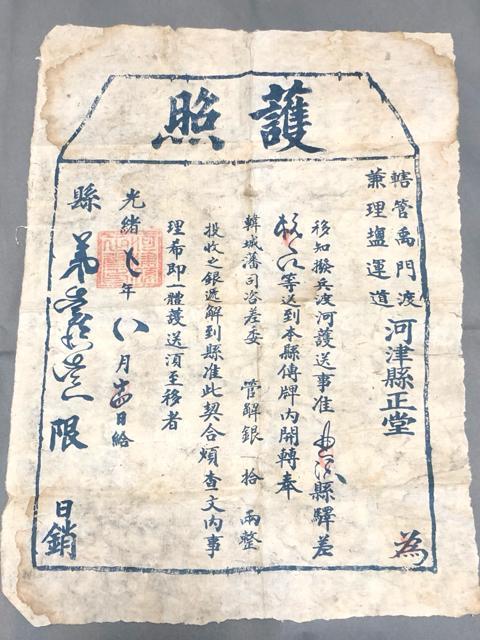 護照
轄管禹門渡
兼理塩運道
河津縣正堂
為
移知撥兵渡河護送事准縣驛差
等送到本縣傳牌内開轉奉
韓城藩司咨差委 管解銀 拾 兩整
投收之銀逓解到縣准此契合煩查文内事
理希即一體護送須至移者
光緒七年八月 日給
縣 第 限 日銷